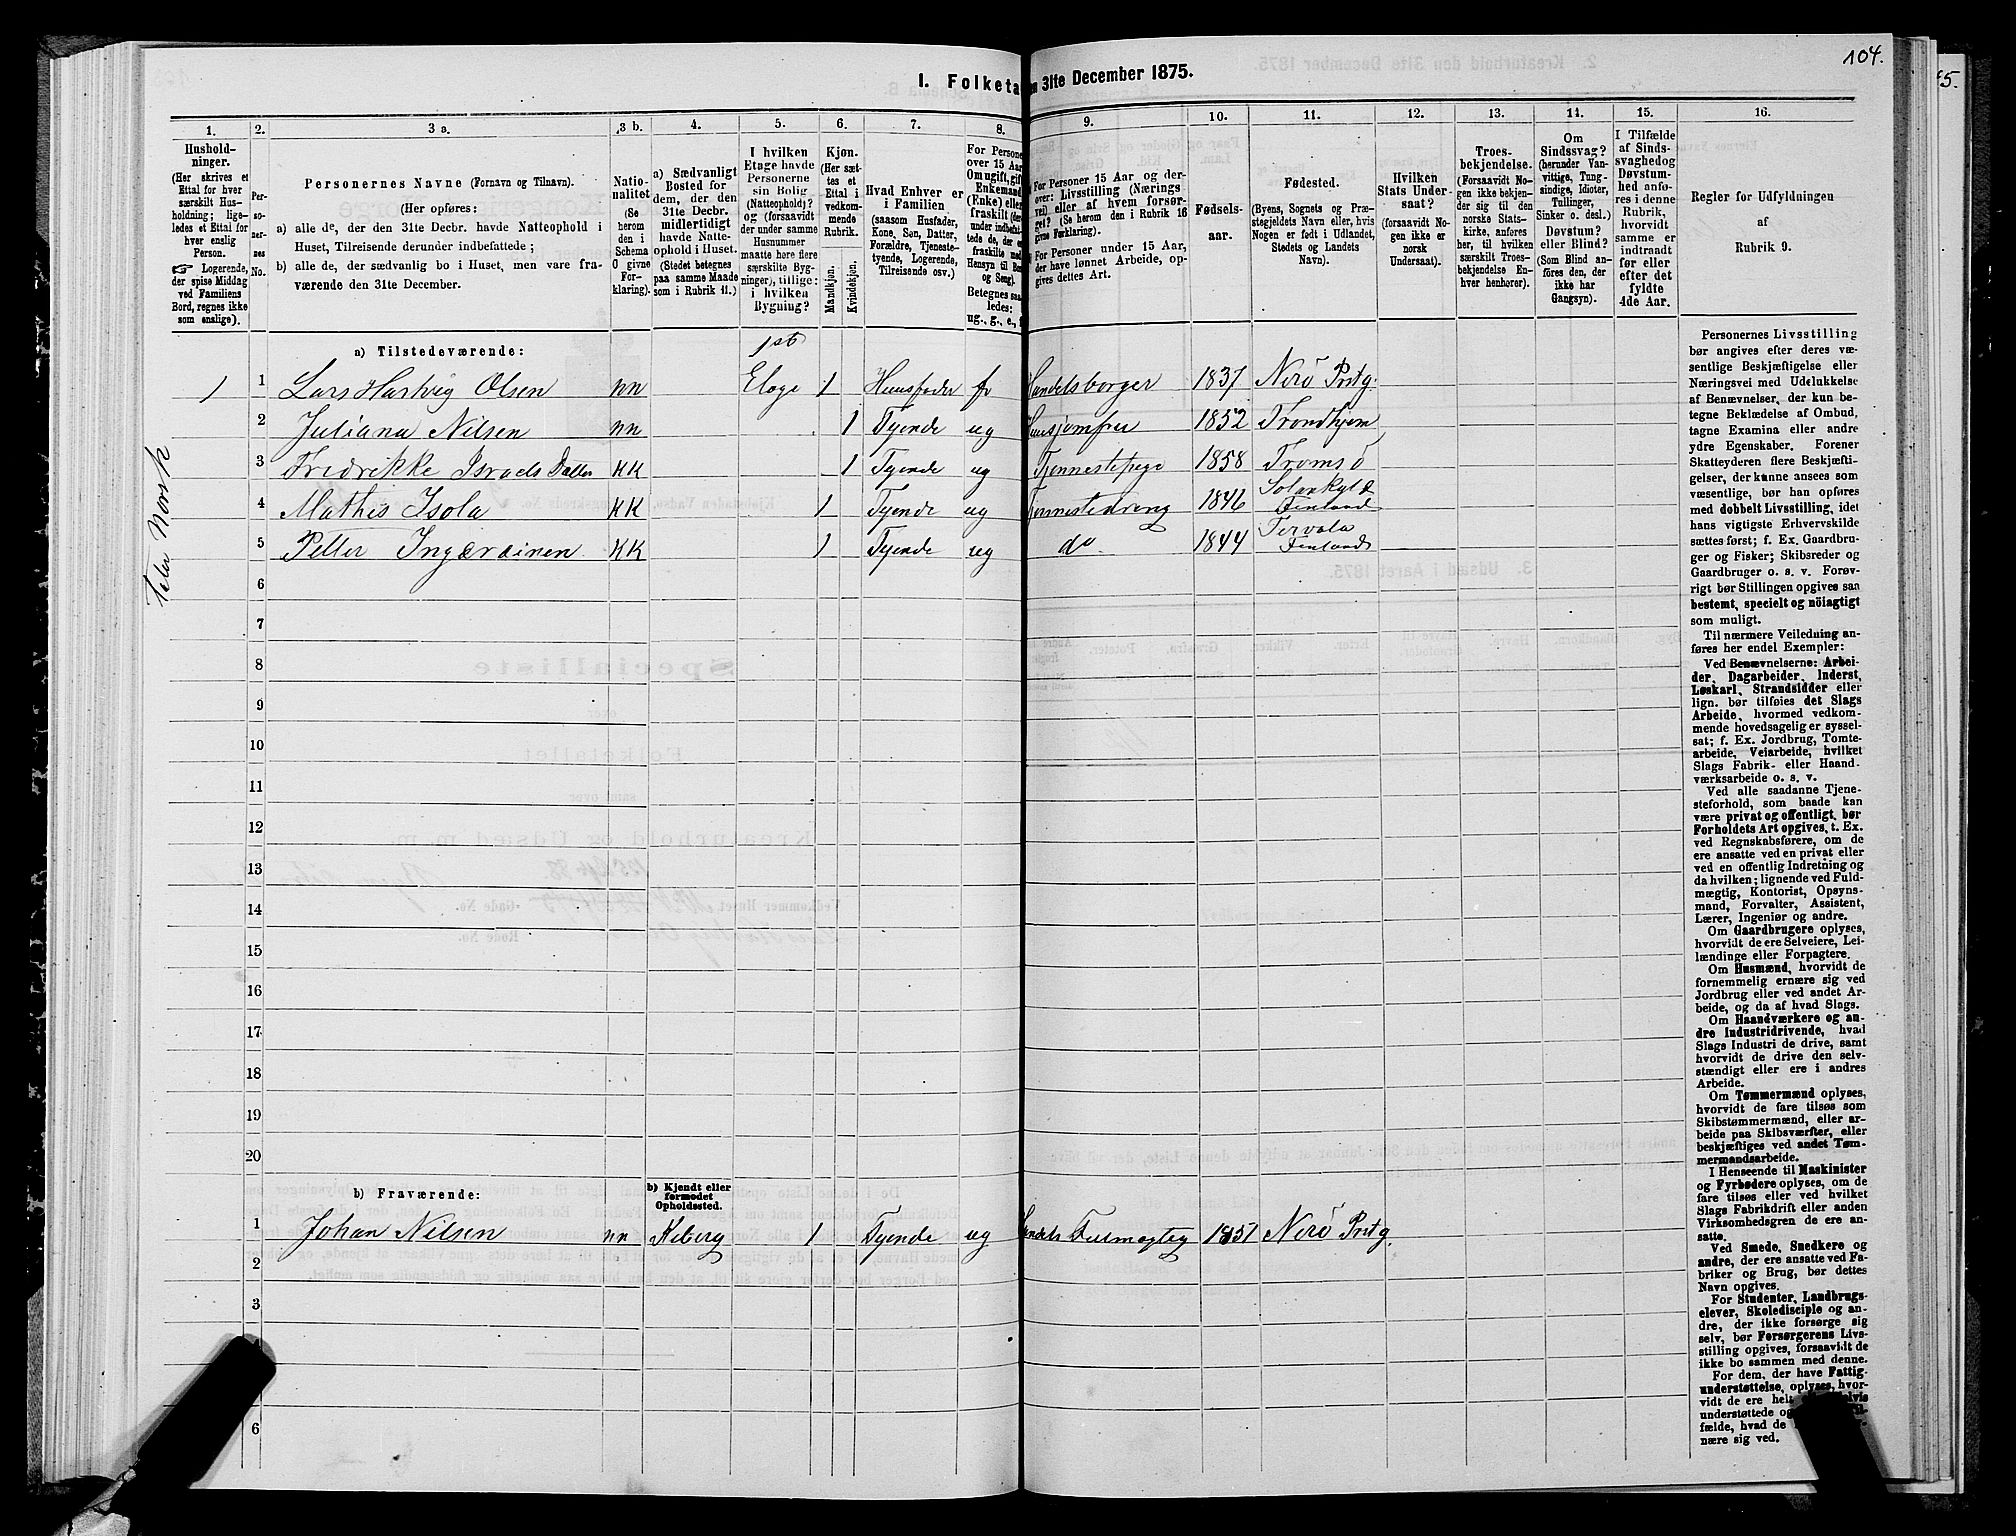 104.
I. Folketa
n 31te December 1875.
1. 2. 3 a. 3 b. 4. 5. 6. 7. 8. 9. 10. 11. 12. 13. 14. 15. 16.
Hushold-
ninger.
(Her skrives et
Ettal for hver
særskilt Hus-
holdning; lige-
ledes et Ettal for
hver enslig
Person.
☞ Logerende,
der spise Middag
ved Familiens
Bord, regnes ikke
som enslige).
Per-
so-
ner-
nes
No.
Personernes Navne (Fornavn og Tilnavn).
(Her opføres:
a) alle de, der den 31te Decbr. havde Natteophold i
Huset, Tilreisende derunder indbefattede;
b) alle de, der sædvanlig bo i Huset, men vare fra-
værende den 31te December.
Natio-
nalitet
(Se
herom
den i
Schema
O givne
For-
klaring).
a) Sædvanligt
Bosted for
dem, der den
31te Decbr.
midlertidigt
havde Natte-
ophold i Huset.
(Stedet betegnes
paa samme Maade
som i Rubrik 11.)
I hvilken
Etage havde
Personerne
sin Bolig
(Natteophold)?
og (forsaavidt
der under samme
Husnummer
maatte høre flere
særskilte Byg-
ninger), tillige:
i hvilken
Bygning?
Kjøn.
(Her sæt-
tes et
Ettal i
vedkom-
mende
Rubrik.
Mandkjøn.
Kvindekjøn.
Hvad Enhver er
i Familien
(saasom Husfader,
Kone, Søn, Datter,
Forældre, Tjeneste-
tyende, Logerende,
Tilreisende osv.)
For Persone
over 15 Aar
Om ugift, gift
Enkemand
(Enke) elle
fraskilt (der
under indbefat-
tede de, der e
fraskilte me
Hensyn til Bo
og Seng).
Betegnes saa
ledes:
ug., g., e., f
For Personer 15 Aar og der-
over: Livsstilling (Nærings
vei) eller af hvem forsør-
get? (Se herom den i Rubrik 16
givne Forklaring).
For Personer under 15 Aar,
der have lønnet Arbeide, op-
gives dettes Art.
Fødsels-
aar.
Fødested.
(Byens, Sognets og Præ-
stegjeldets Navn eller, hvis
Nogen er født i Udlandet,
Stedets og Landets
Navn).
Hvilken
Stats Under-
saat?
(forsaavidt No-
gen ikke er
norsk
Undersaat).
Troes-
bekjendelse.
(Forsaavidt No-
gen ikke bekjen-
der sig til den
norske Stats-
kirke, anføres
her, til hvilken
særskilt Troes-
bekjendelse En-
hver henhører).
Om
Sindssvag?
(herunder Van-
vittige, Tung-
sindige, Idioter,
Tullinger,
Sinker o. desl.)
Døvstum?
eller Blind?
(Som Blind an-
føres den, der
ikke har
Gangsyn).
I Tilfælde
af Sinds-
svaghed og
Døvstum-
hed anfø-
res i denne
Rubrik,
hvorvidt
samme er
indtraadt
før eller
efter det
fyldte
4de Aar.
Regler for Udfyldningen
af
Rubrik 9.
a) Tilstedeværende:
1st
1 1 Lars Hartvig Olsen nn Etage 1 Huusfader fr Handelsborger 1837 Nerö Prstg.
2 Juliana Nilsen nn 1 Tyende ug Huusjomfru 1852 Trondhjem
3 Fredrikke Israels Datter KK 1 Tyende ug Tjennestepige 1858 Tromsö
4 Mathis Isola KK 1 Tyende ug Tjennestedreng 1846 Finland
5 Petter KK 1 Tyende ug do 1844 Tervola
Finland
6
7
8
9
10
11
12
13
14
15
16
17
18
19
20
Taler Norsk
b) Fraværende:
b) Kjendt eller
formodet
Opholdssted.
1 Johan Nilsen nn Kiberg 1 Tyende ug Handels Fulmegtig 1851 Nerö Prstg
2
3
6
Personernes Livsstilling
bør angives efter deres væ-
sentlige Beskjæftigelse eller
Næringsvei med Udelukkelse
af Benævnelser, der kun be-
tegne Beklædelse af Ombud,
tagne Examina eller andre
ydre Egenskaber. Forener
Skatteyderen flere Beskjæfti-
gelser, der kunne ansees som
væsentlige, bør han opføres
med dobbelt Livsstilling, idet
hans vigtigste Erhvervskilde
sættes først; f. Ex. Gaardbru-
ger og Fisker; Skibsreder og
Gaardbruger o. s. v. Forøv-
rigt bør Stillingen opgives saa
bestemt, specielt og nöiagtigt
som muligt.
Til nærmere Veiledning an-
føres her endel Exempler:
Ved Benævnelserne: Arbei-
der, Dagarbeider, Inderst,
Løskarl, Strandsidder eller
lign. bør tilføies det Slags
Arbeide, hvormed vedkom-
mende hovedsagelig er syssel-
sat; f. Ex. Jordbrug, Tomte-
arbeide, Veiarbeide, hvilket
Slags Fabrik- eller Haand-
værksarbeide o. s. v.
Ved alle saadanne Tjene-
steforhold, som baade kan
være privat og offentligt, bør
Forholdets Art opgives, t. Ex.
ved Regnskabsførere, om de
ere ansatte ved en privat eller
ved en offentlig Indretning og
da hvilken; lignende ved Fuld-
mægtig, Kontorist, Opsyns-
mand, Forvalter, Assistent,
Lærer, Ingeniør og andre.
Om Gaardbrugere oplyses,
hvorvidt de ere Selveiere, Lei-
lændinge eller Forpagtere.
Om Husmænd, hvorvidt de
fornemmelig ernære sig ved
Jordbrug eller ved andet Ar-
beide, og da af hvad Slags.
Om Haandværkere og an-
dre Industridrivende, hvad
Slags Industri de drive, samt
hvorvidt de drive den selv-
stændigt eller ere i andres
Arbeide.
Om Tømmermænd oplyses,
hvorvidt de fare tilsøs som
Skibstømmermænd, eller ar-
beide paa Skibsværfter, eller
beskjæftiges ved andet Tøm-
mermandsarbeide.
I Henseende til Maskinister
og Fyrbødere oplyses, om de
fare tilsøs eller ved hvilket
Slags Fabrikdrift eller anden
Virksomhedsgren de ere an-
satte.
Ved Smede, Snedkere og
andre, der ere ansatte ved Fa-
briker og Brug, bør dettes
Navn opgives.
For Studenter, Landbrugs-
elever, Skoledisciple og an-
dre, der ikke forsørge sig
selv, bør Forsørgerens Livs-
stilling opgives, forsaavidt de
ikke bo sammen med denne.
For dem, der have Fattig-
understøttelse, oplyses, hvor-
vidt de ere hel
understøttede o
fælde, hvad de
nære sig ved.